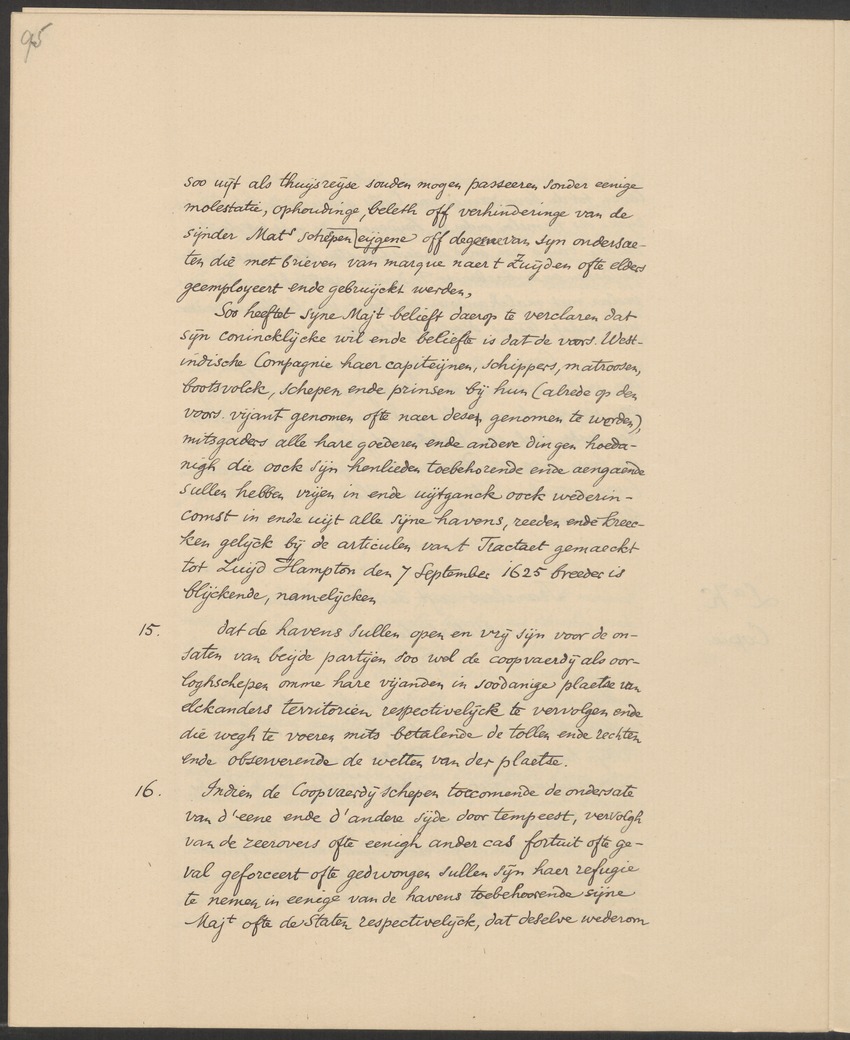 95
soo uijt als thuijsreijse souden mogen passeeren sonder eenige
molestatie, ophoudinge, beleth off verhinderinge van de
sijnder Mats schepen eijgene off degeene van sijn ondersae-
ten die met brieven van marque naer t Zuijden ofte elders
geemployeert ende gebruijckt werden,
Soo heeftet sijne Majt belieft daerop te verclaren dat
sijn conincklijcke wil ende beliefte is dat de voors. West-
indische Compagnie haer capiteijnen, schippers, matroosen,
bootsvolck, schepen ende prinsen bij hun (alrede op den
voors. vijant genomen ofte naer desen genomen te worden),
mitsgaders alle hare goederen ende andere dingen hoeda-
nigh die oock sijn henlieden toebehorende ende aengaende
sullen hebben vrijen in ende uijtganck oock wederin-
comst in ende uijt alle sijne havens, reeden ende kreec-
ken gelijck bij de articulen vant Tractaet gemaeckt
tot Zuijd Hampton den 7 September 1625 breeder is
blijckende, namelijcken
15. dat de havens sullen open en vrij sijn voor de on-
saten van beijde partijen soo wel de coopvaerdij als oor-
loghschepen omme hare vijanden in soodanige plaetse van
elckanders territorien respectivelijck te vervolgen ende
die wegh te voeren mits betalende de tollen ende rechten
ende observerende de wetten van der plaetse.
16. Indien de Coopvaerdij schepen toecomende de ondersate
van d'eene ende d'andere sijde door tempeest, vervolgh
van de zeerovers ofte eenigh ander cas fortuit ofte ge-
val geforceert ofte gedwongen sullen sijn haer refugie
te nemen in eenige van de havens toebehoorende sijne
Majt ofte de Staten respectivelijck, dat deselve wederom